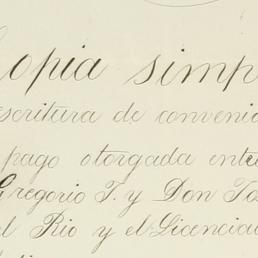 Copia simp
escritura de convenio
pago otorgada entre
Gregorio T. y Don
el Rio y el Licencia